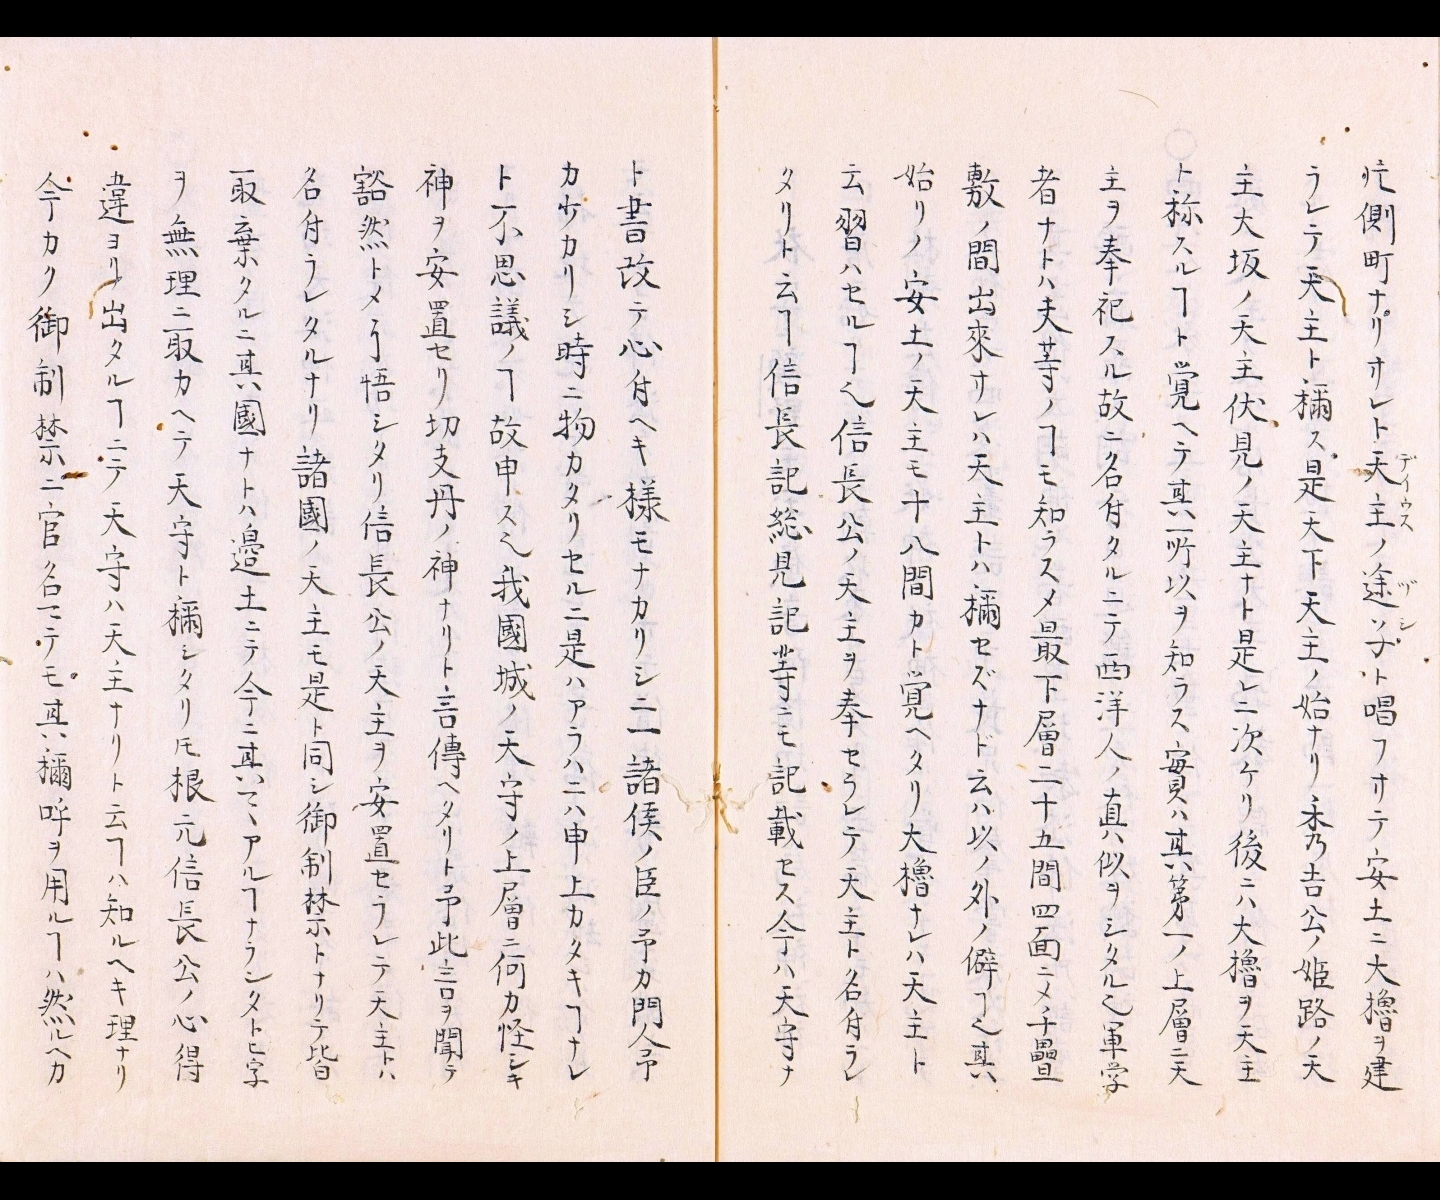 片側町ナリサレト天主ノ途子ト唱フサテ安土ニ大櫓ヲ建
デイウス
ヅシ
ラレテ天主ト稱ス是天下天主ノ始ナリ秀吉公ノ姫路ノ天
主大坂ノ天主伏見ノ天主ナト是レニ次ケリ後ニハ大櫓ヲ天主
ト称スルヿト覚ヘテ其所以ヲ知ラス實ハ其第一ノ上層ニ天
主ヲ奉祀スル故ニ名付タルニテ西洋人ノ真似ヲシタル也軍学
者ナトハ夫等ノヿモ知ラスメ最下層二十五間四面ニメ千疊
敷ノ間出來サレハ天主トハ稱セズナド云ハ以ノ外ノ僻ヿ也其
始リノ安土ノ天主モ十八間カト覚ヘタリ大櫓ナレハ天主ト
云習ハセルヿ也信長公ノ天主ヲ奉セラレテ天主ト名付ラレ
タリト云ヿ信長記総見記等ニモ記載セス今ハ天守ナ
ト書改テ心付ヘキ様モナカリシニ一諸侯ノ臣ノ予カ門人予
カ少カリシ時ニ物カタリセルニ是ハアラハニハ申上カタキヿナレ
ト不思議ノヿ故申ス也我國城ノ天守ノ上層ニ何カ怪シキ
神ヲ安置セリ切支丹ノ神ナリト言傳ヘタリト予此言ヲ聞テ
豁然トメ了悟シタリ信長公ノ天主ヲ安置セラレテ天主トハ
名付ラレタルナリ諸國ノ天主モ是ト同シ御制禁トナリテ皆
取棄タルニ其國ナトハ邉土ニテ今ニ其マヽアルヿナランタトヒ字
ヲ無理ニ取カヘテ天守ト稱シタリ𪜈根元信長公ノ心得
違ヨリ出タルヿニテ天守ハ天主ナリト云ヿハ知ルヘキ理ナリ
今カク御制禁ニ官名マテモ其稱呼ヲ用ルヿハ然ルヘカ